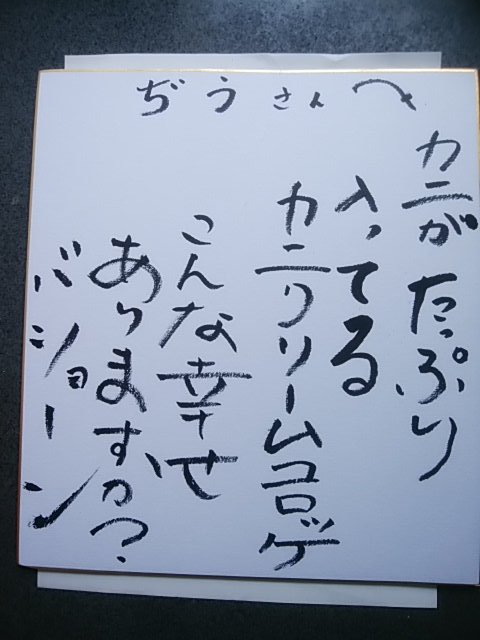 ぢうさんへ
カニがたっぷり
入ってる
カニクリームコロッケ
こんな幸せ
ありますか?
バショーン